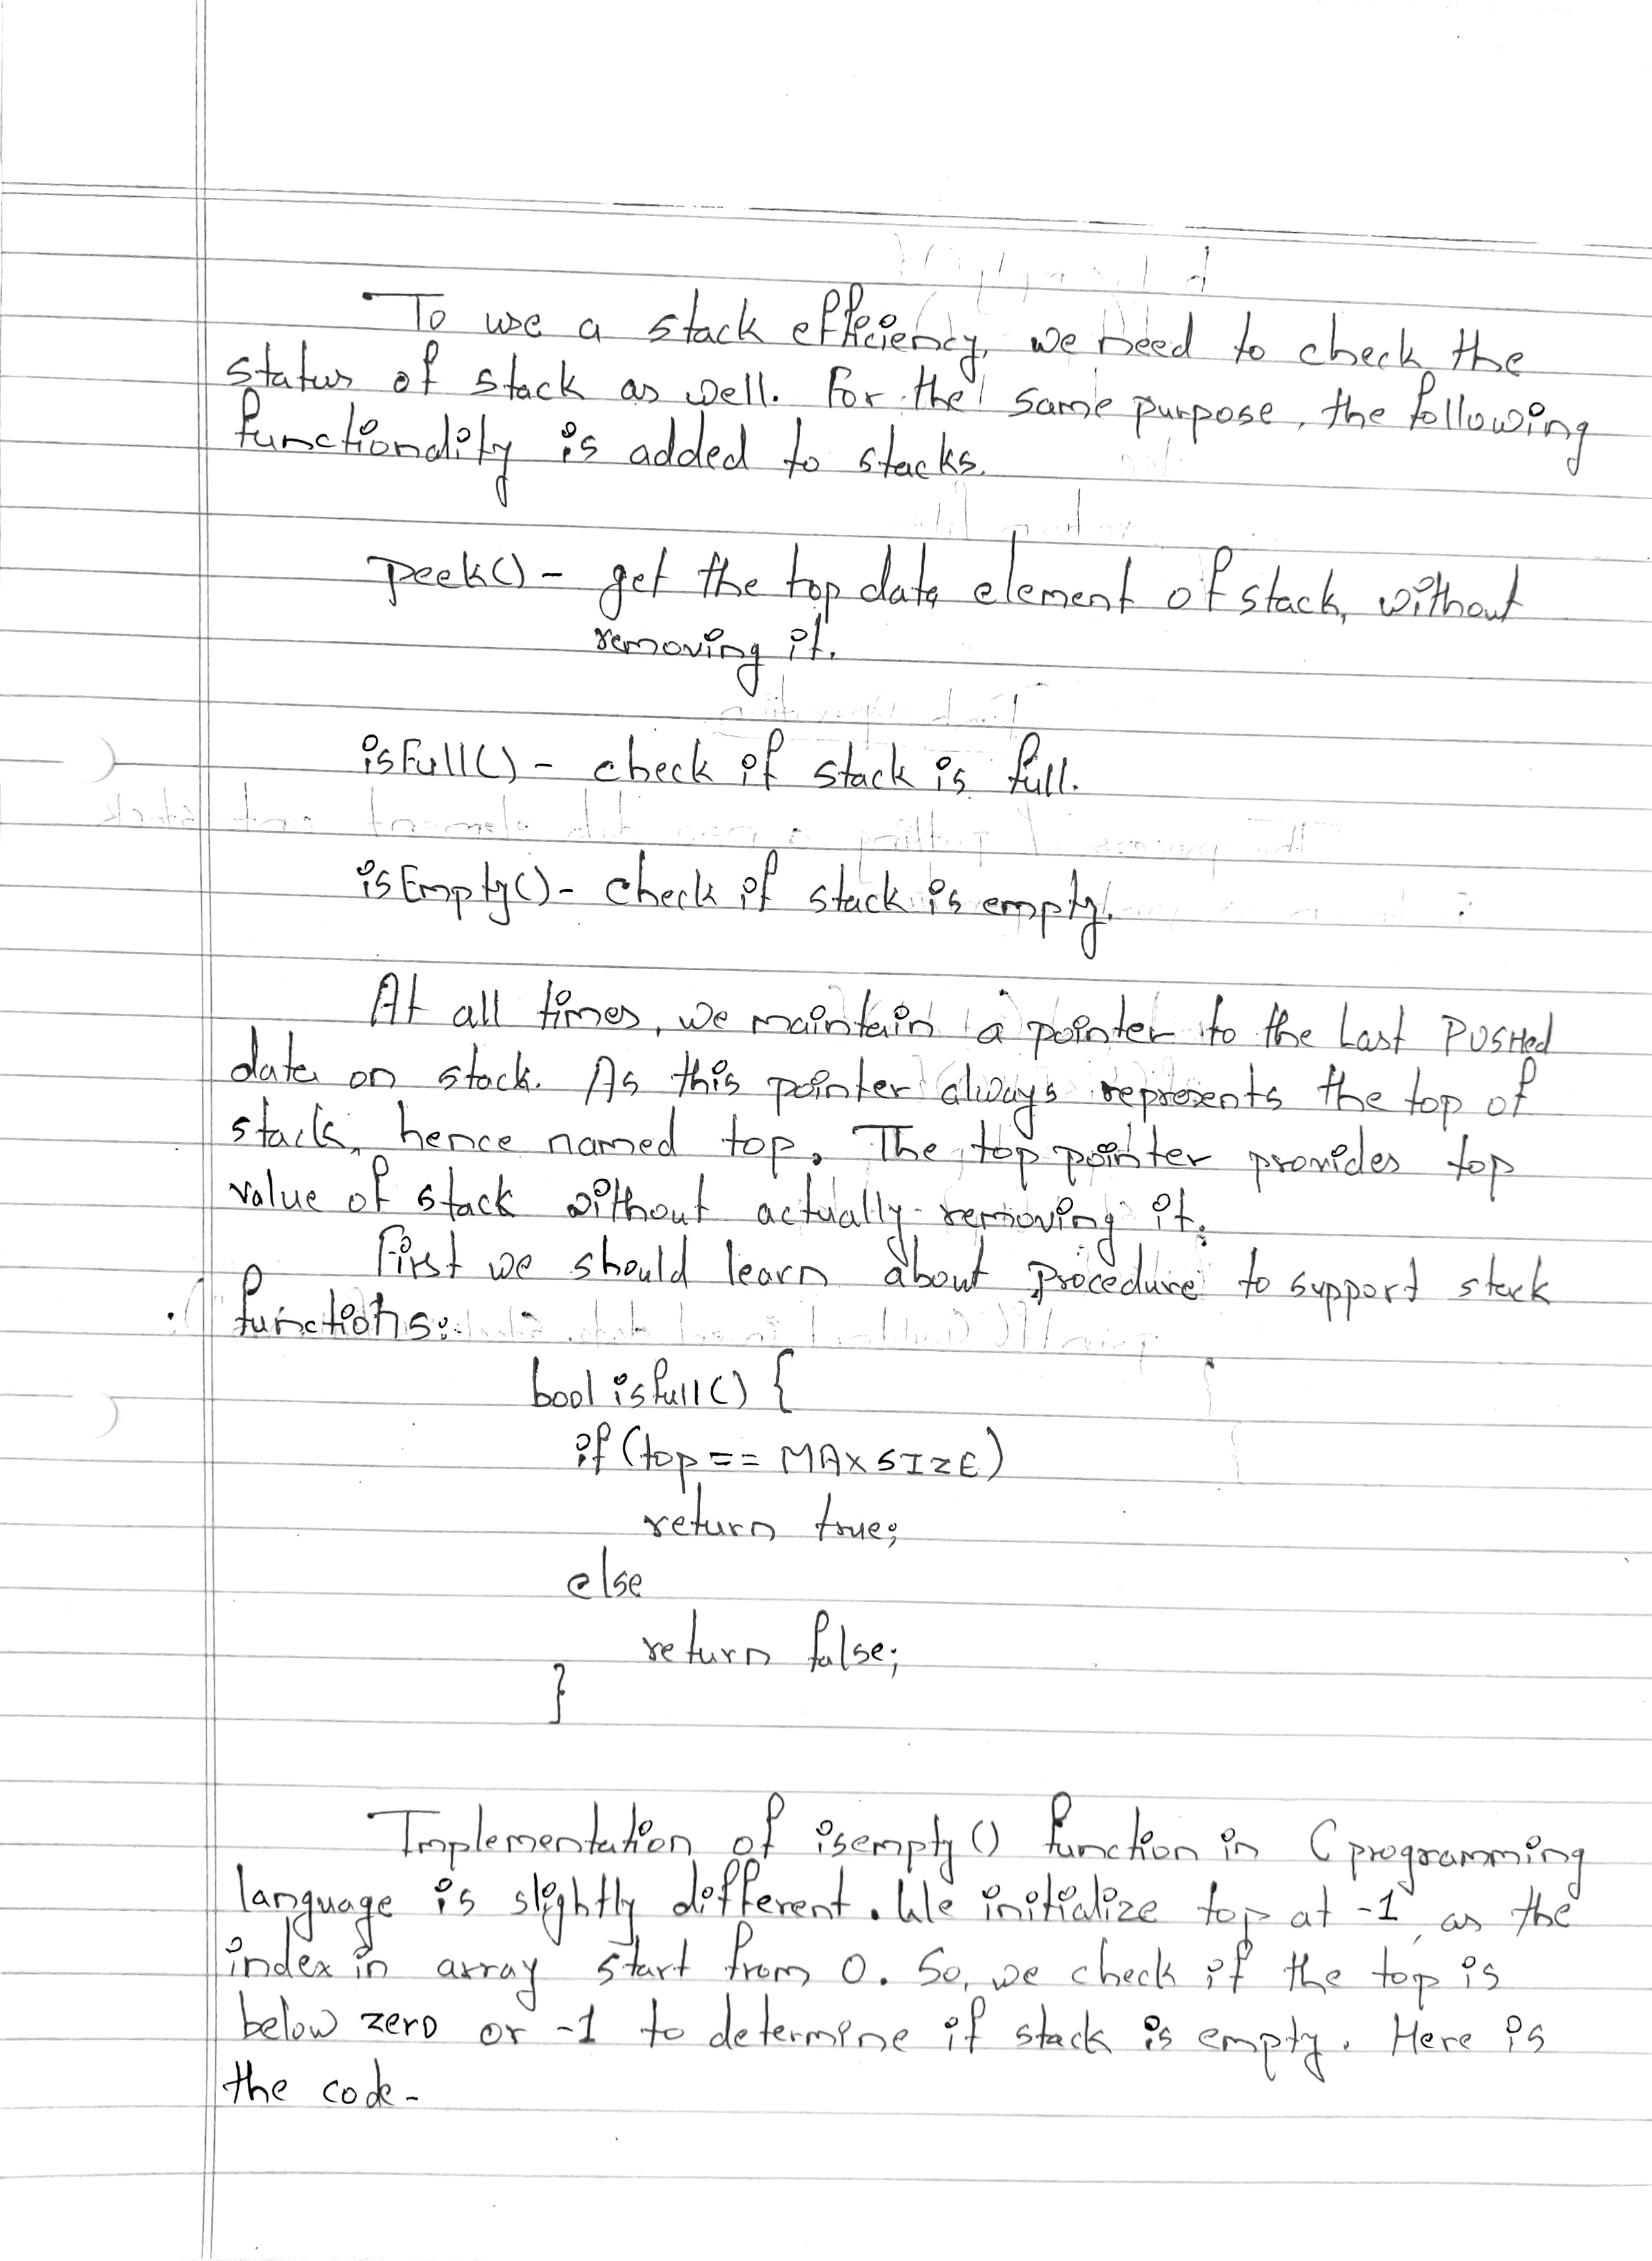 To use a stack efficiency, we need to check the
status of stack as well. For the same purpose, the following
functionality is added to stacks.
peek() - get the top data element of stack, without
removing it.
isFull() - check if stack is full.
isEmpty() - check if stack is empty.
At all times, we maintain a pointer to the Last PUSHed
data on stack. As this pointer always represents the top of
stack, hence named top. The top pointer provides top
value of stack without actually removing it.
First we should learn about procedure to support stack
functions:
bool isfull() {
if (top == MAXSIZE)
return true;
else
return false;
}
Implementation of isempty() function in C programming
language is slightly different. We initialize top at -1, as the
index in array start from 0. So, we check if the top is
below zero or -1 to determine if stack is empty. Here is
the code -